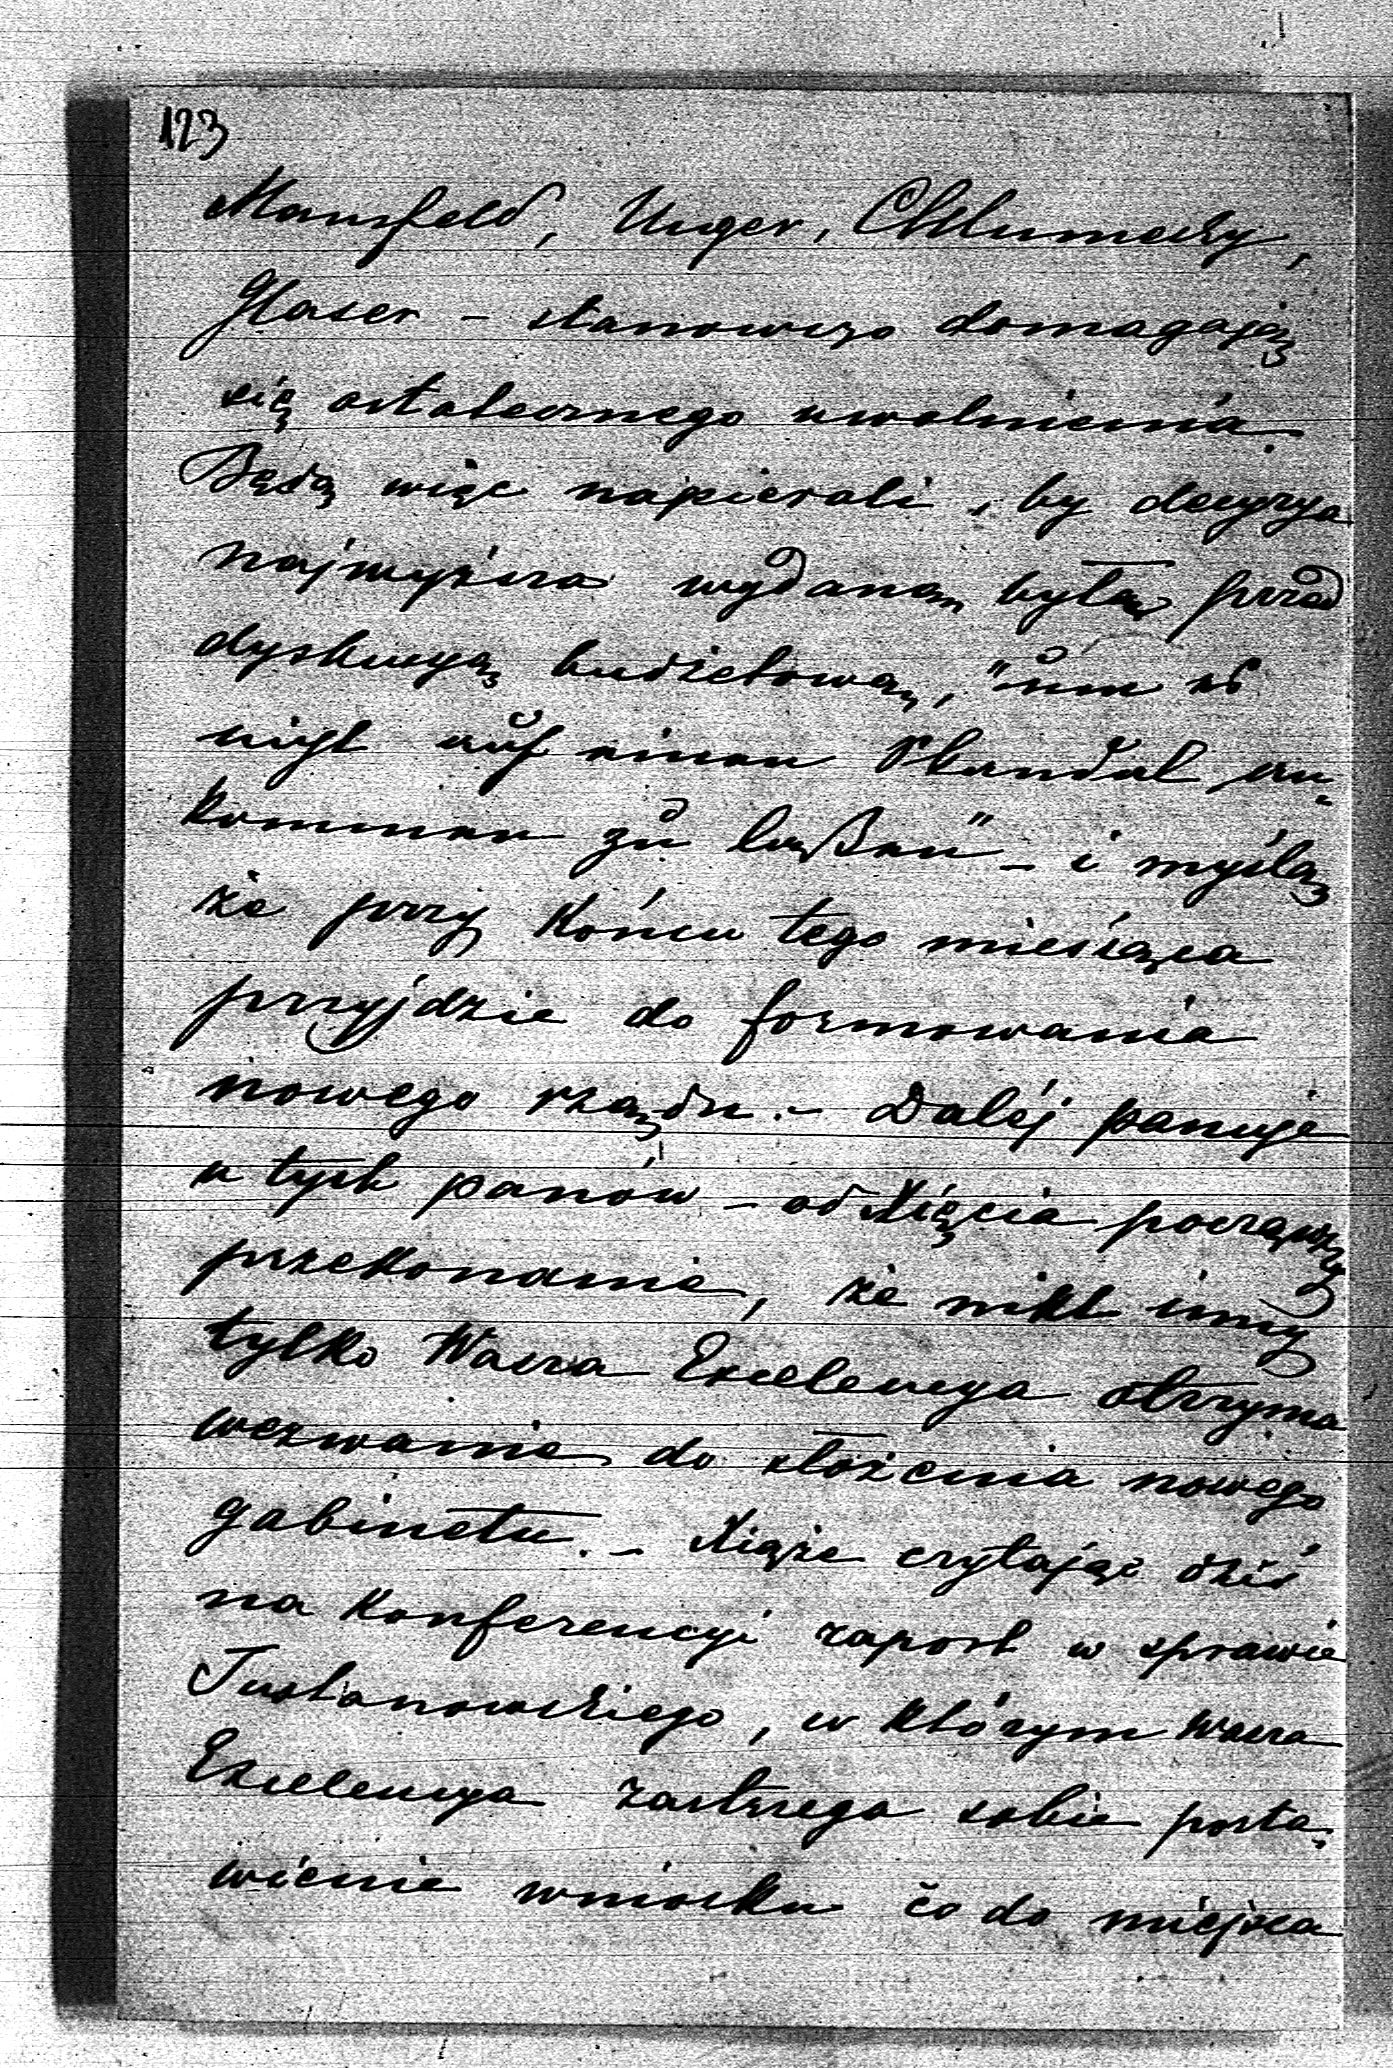 123
Mansfeld, Unger, Chlumecky,
Glaser – stanowczo domagają
się ostatecznego uwolnienia.
Będą więc napierali, by decyzya
najwyższa wydaną byłą przed
dyskusyą budżetową, "um es
nicht auf einen Skandal an-
kommen zu laßen" – i myślą
że przy końcu tego miesiąca
przyjdzie do formowania
nowego rządu. – Daléj panuje
u tych panów – od Xięcia począwszy
przekonanie, że nikt inny
tylko Wasza Excelencya otrzyma
wezwanie do złożenia nowego
gabinetu. – Xiąże czytając dziś
na konferencyi raport w sprawie
Tustanowskiego, w którym Wasza
Excelencya zastrzega sobie posta-
wienie wniosku co do miejsca